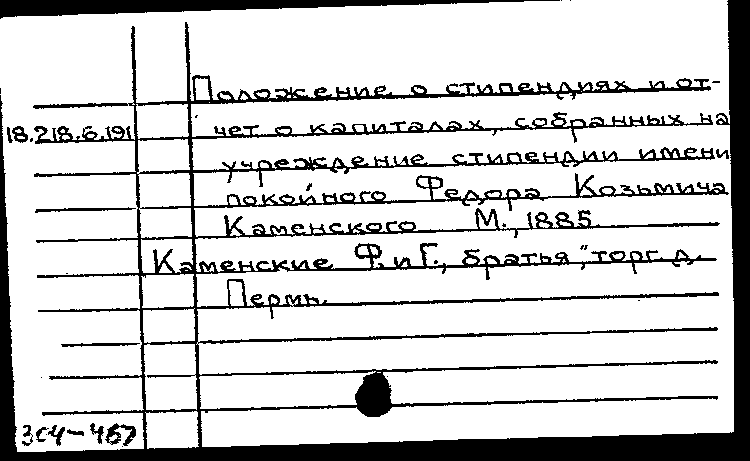 Положение о стипендиях и от-
18.218.6.191 чет о капиталах, собранных на
учреждение стипендии имени
покойного Федора Козьмича
Каменского М., 1885.
Каменские Ф. и Г., братья", торг. д.
Пермь.
304-467